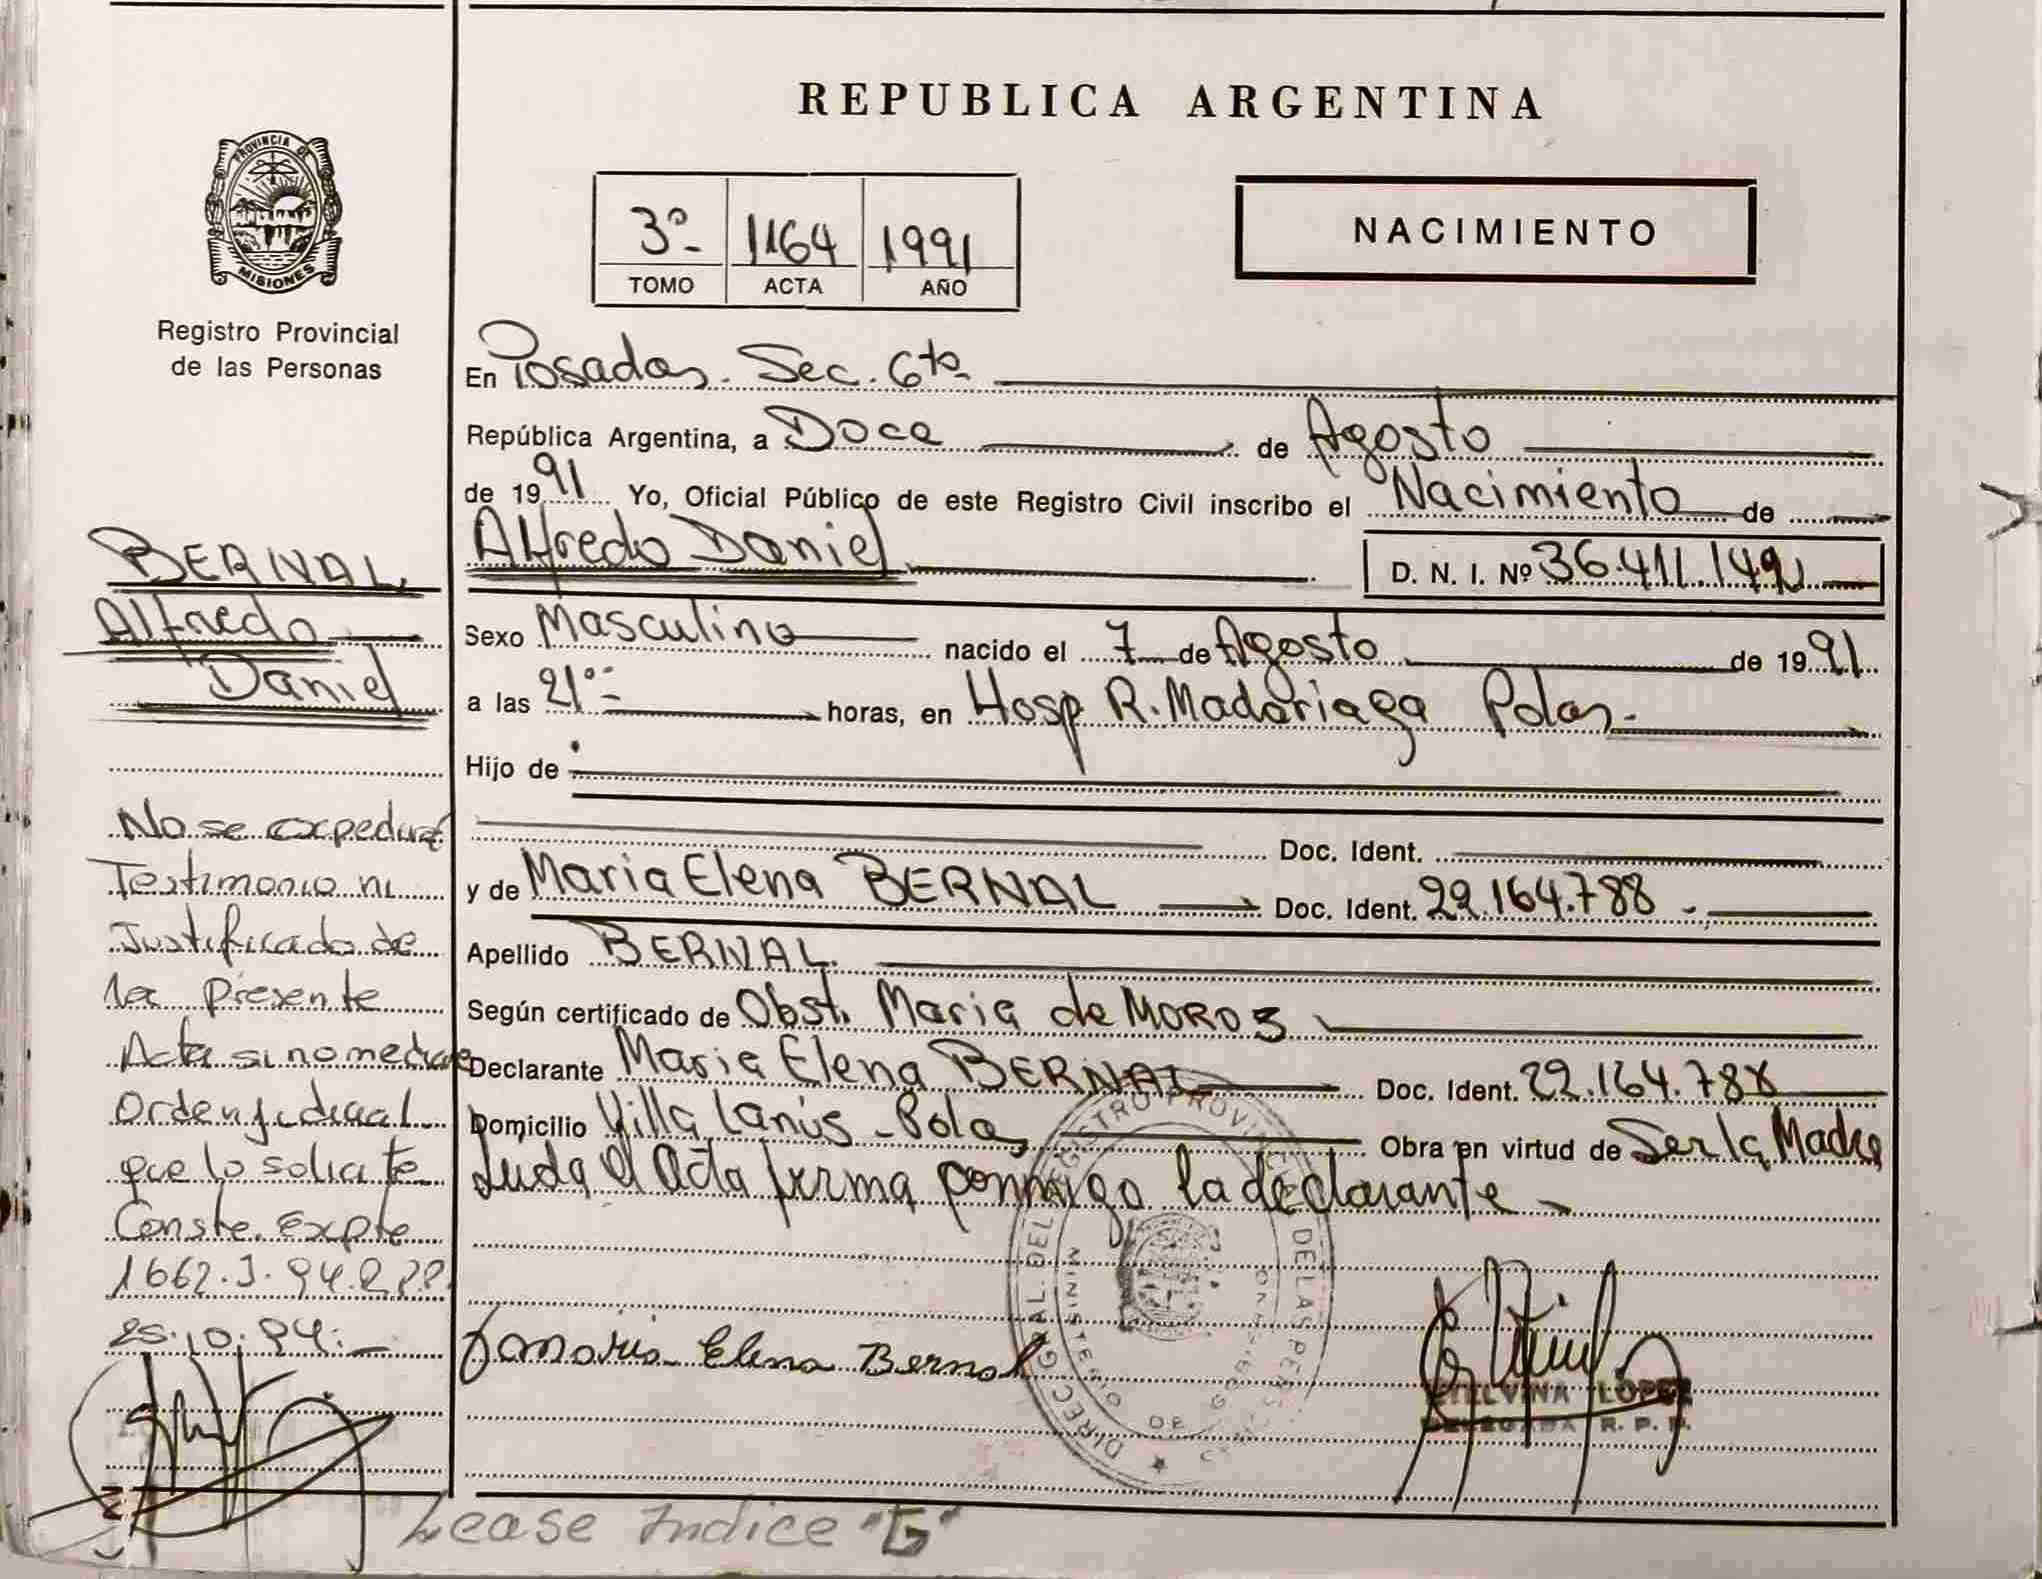 REPUBLICA ARGENTINA
PROVINCIA DE
MISIONES
Registro Provincial
de las Personas
3º- 1164 1991
TOMO ACTA AÑO
NACIMIENTO
En Posadas. Sec. 6ta
República Argentina, a Doce de Agosto
de 1991 Yo, Oficial Público de este Registro Civil inscribo el Nacimiento de
Alfredo Daniel
D. N. I. Nº 36.411.149
Sexo Masculino nacido el 7 de Agosto de 1991
a las 21 horas, en Hosp R. Madariaga Pdas.
Hijo de
Doc. Ident.
y de Maria Elena BERNAL Doc. Ident. 22.164.788.
Apellido BERNAL
Según certificado de Obst. Maria de MOROZ
Declarante Maria Elena BERNAL Doc. Ident. 22.164.788
Domicilio Villa Lanús - Pdas Obra en virtud de Ser la Madre
Leida el Acta firma conmigo la declarante
Maria Elena Bernal
LOPEZ
DELEGADA R. P. P.
BERNAL
Alfredo
Daniel
No se expedirá
Testimonio ni
Justificado de
la presente
Acta si no mediare
Orden judicial
que lo solicite
Conste. Expte
1662.J.94.
25.10.94.-
Lease Indice "G"
DIRECC GRAL. DEL REGISTRO PROVINCIAL DE LAS PERSONAS
MINISTERIO DE GOBIERNO